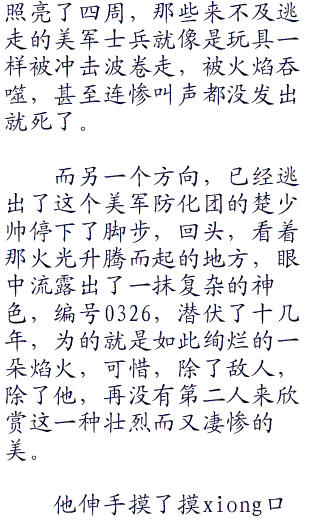 照亮了四周，那些来不及逃
走的美军士兵就像是玩具一
样被冲击波卷走，被火焰吞
噬，甚至连惨叫声都没发出
就死了。
而另一个方向，已经逃
出了这个美军防化团的楚少
帅停下了脚步，回头，看着
那火光升腾而起的地方，眼
中流露出了一抹复杂的神
色，编号0326，潜伏了十几
年，为的就是如此绚烂的一
朵焰火，可惜，除了敌人，
除了他，再没有第二人来欣
赏这一种壮烈而又凄惨的
美。
他伸手摸了摸xiong口